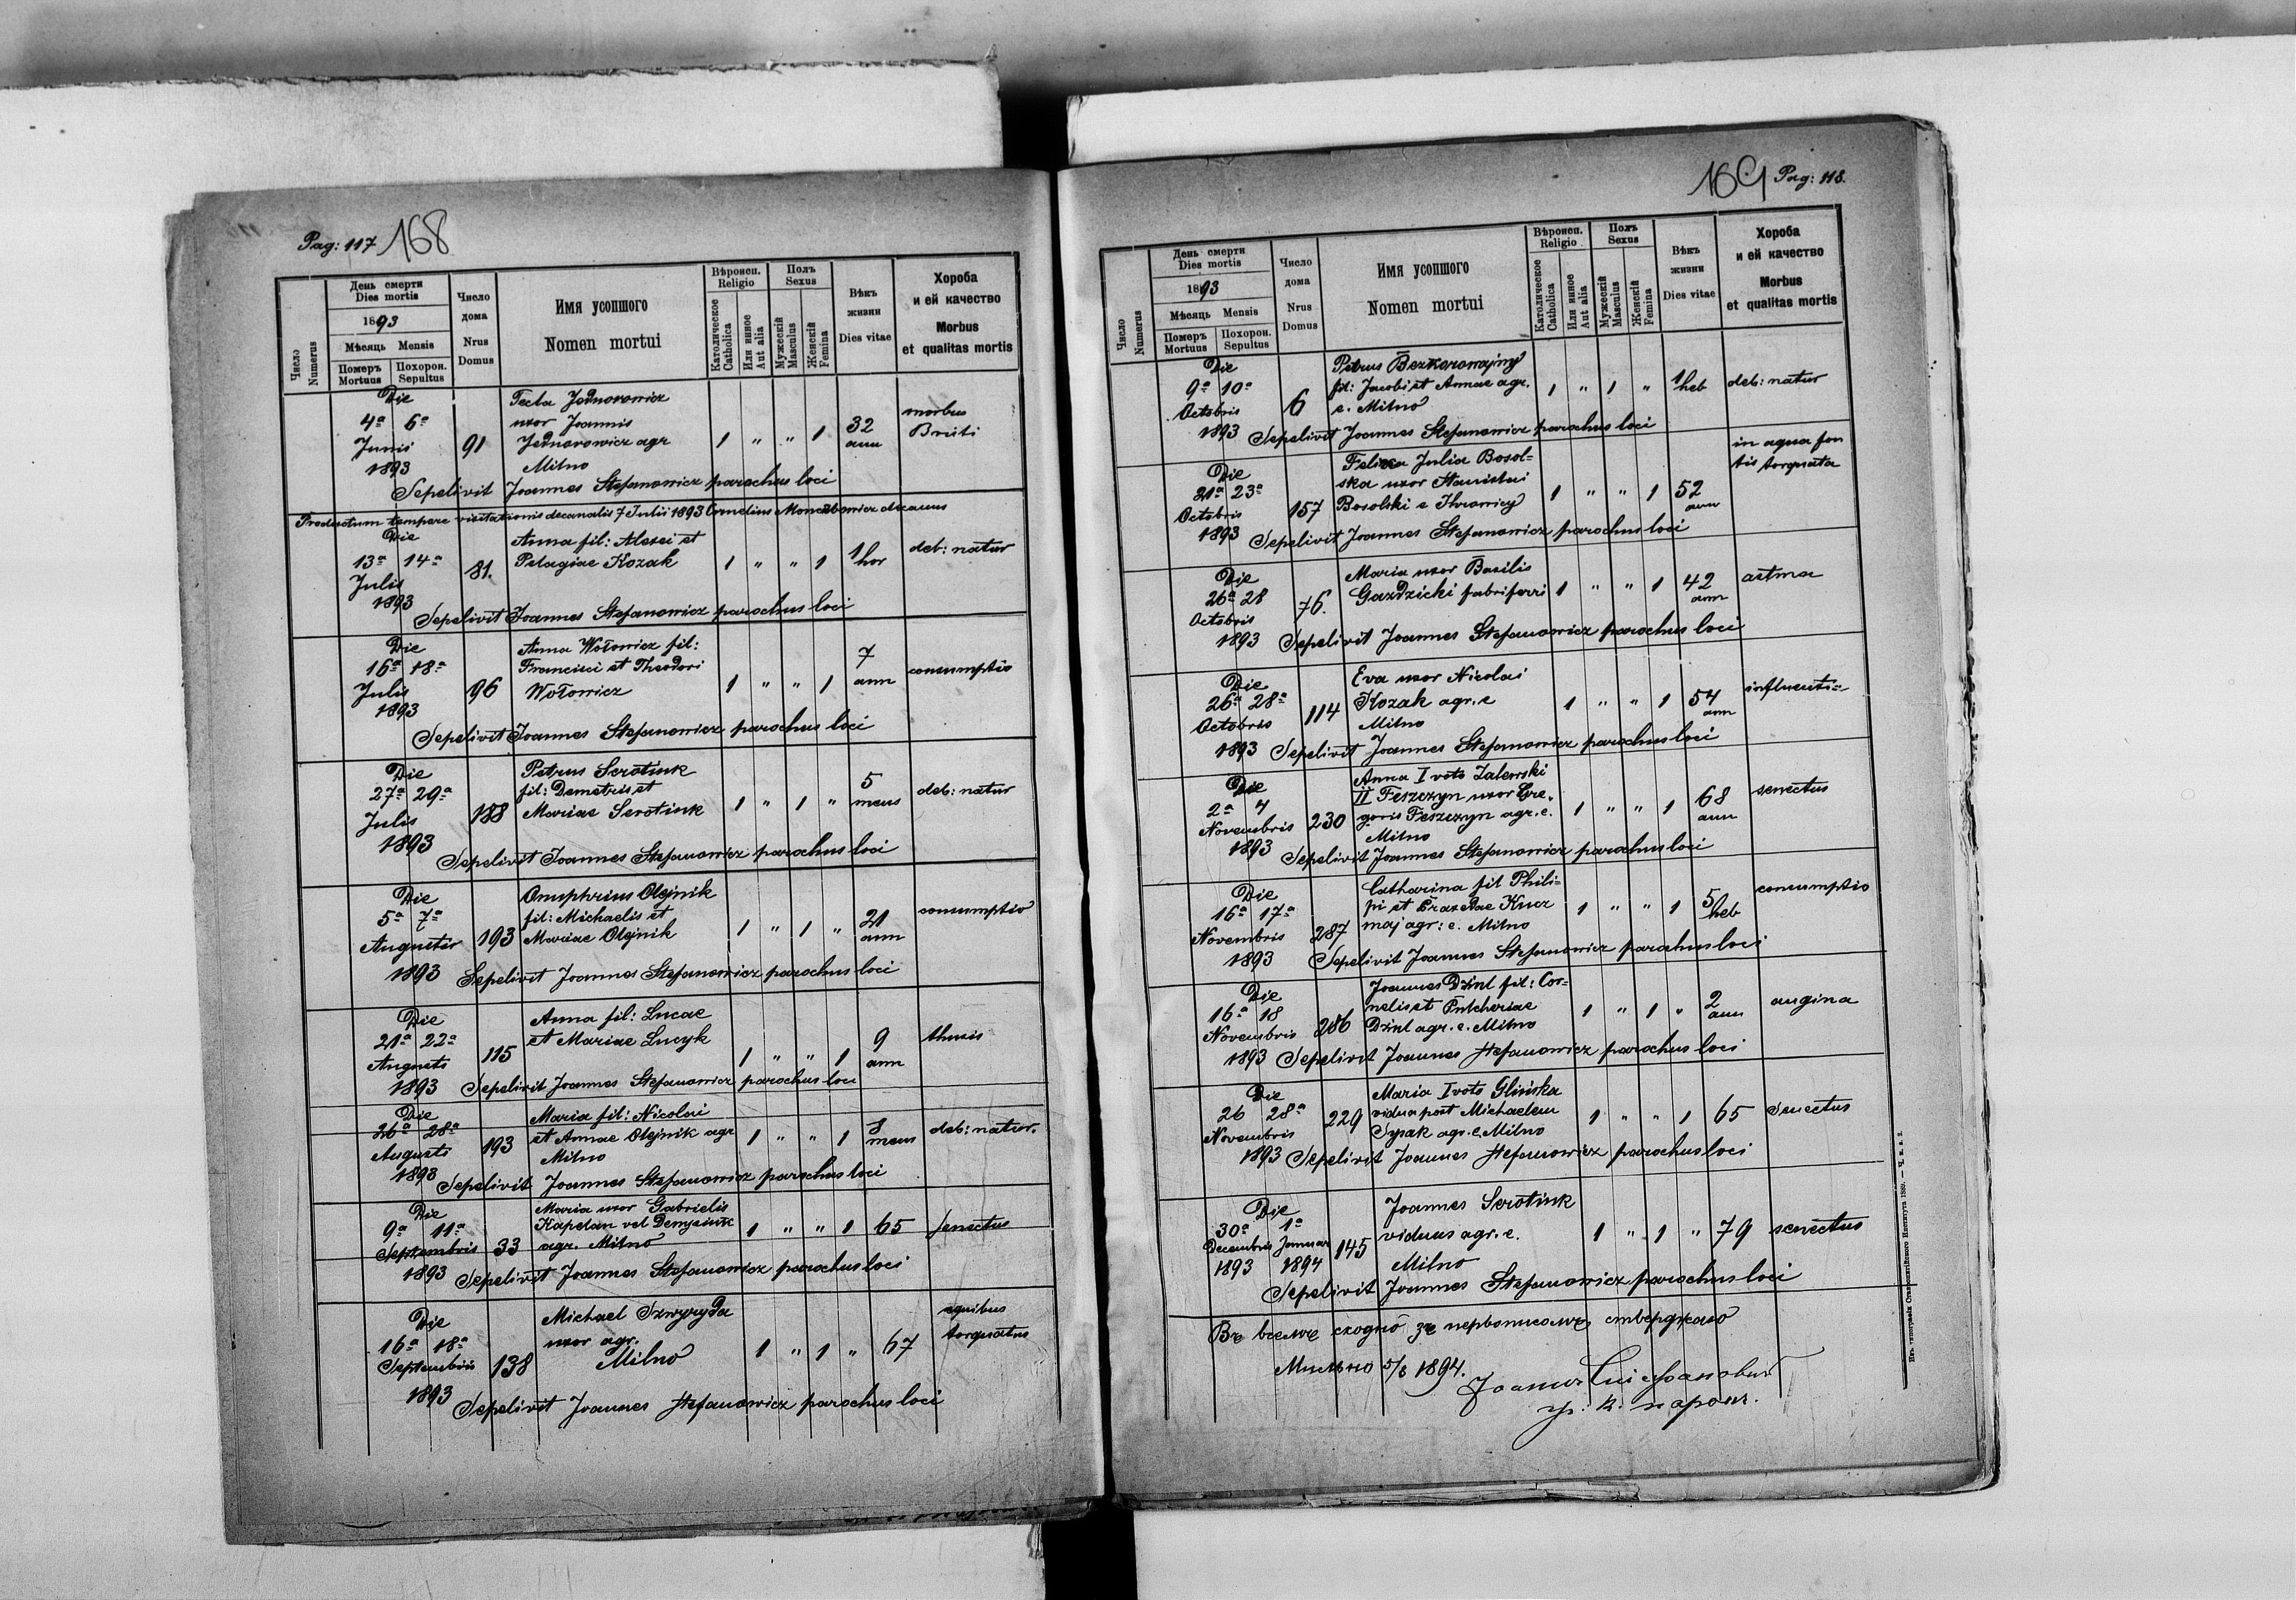 Pag: 117 168
Число
Numerus
День смерти
Dies mortis
1893
Мѣсяць Mensis
Померъ Mortuus
Похорон. Sepultus
Число дома
Nrus Domus
Имя усопшого
Nomen mortui
Вѣроисп.
Religio
Католическое
Catholica
Или инное
Aut alia
Полъ
Sexus
Мужескій
Masculus
Женскій
Femina
Вѣкъ жизни
Dies vitae
Хороба
и ей качество
Morbus
et qualitas mortis
Die
Tecla Jednorowicz
4ª 6ª uxor Joannis 32 morbus
Junii 91 Jednorowicz agr 1 " " 1 ann
1893 Milno
Sepelivit Joannes Stefanowicz parochus loci
Productum tempore visitationis decanalis 7 Julii 1893 Cornelius decanus
Die Anna fil: Alexei et
13ª 14ª 81. Pelagiae Kozak 1 " " 1 1 hor deb: natur
Julii
1893
Sepelivit Joannes Stefanowicz parochus loci
Die Anna Wołowicz fil:
16ª 18ª Francisci et Theodori 7
Julii 96 Wołowicz 1 " " 1 ann consumptio
1893
Sepelivit Joannes Stefanowicz parochus loci
Die Petrus Serotiuk
27ª 29ª fil: Demetrii et 5
Julii 188 Mariae Serotiuk 1 " 1 " mens deb: natur
1893
Sepelivit Joannes Stefanowicz parochus loci
Die Onuphrius Olejnik
5ª 7ª fil: Michaelis et 21 consumptio
Augusti 193 Mariae Olejnik 1 " 1 " ann
1893 Sepelivit Joannes Stefanowicz parochus loci
Die Anna fil: Lucae
21ª 22ª et Mariae Lucyk 9
Augusti 115 1 " " 1 ann
1893 Sepelivit Joannes Stefanowicz parochus loci
Die Maria fil: Nicolai
26ª 28ª et Annae Olejnik agr 8
Augusti 193 Milno 1 " " 1 mens deb: natur.
1893 Sepelivit Joannes Stefanowicz parochus loci
Die Maria uxor Gabrielis
9ª 11ª Kapelan vel
Septembris 33 agr. Milno 1 " " 1 65 senectus
1893 Sepelivit Joannes Stefanowicz parochus loci
Die Michael Szwyryda equibus
16ª 18ª uxor agr. torquatus
Septembris 138 Milno 1 " 1 " 67
1893
Sepelivit Joannes Stefanowicz parochus loci
169 Pag: 118.
Число
Numerus
День смерти
Dies mortis
1893
Мѣсяць Mensis
Померъ Mortuus
Похорон. Sepultus
Число дома
Nrus Domus
Имя усопшого
Nomen mortui
Вѣроисп.
Religio
Католическое
Catholica
Или инное
Aut alia
Полъ
Sexus
Мужескій
Masculus
Женскій
Femina
Вѣкъ жизни
Dies vitae
Хороба
и ей качество
Morbus
et qualitas mortis
Die Petrus Bezkorowajny
9ª 10ª fil: Jacobi et Annae agr. 1 " 1 " 1 heb deb: natur
Octobris 6 e. Milno
1893 Sepelivit Joannes Stefanowicz parochus loci
Die Felixa Julia Bosol= in aqua fon
21ª 23ª ska uxor Stanislai tis torquata
Octobris 157 Bosolski e 1 " " 1 52 ann
1893 Sepelivit Joannes Stefanowicz parochus loci
Die Maria uxor Basilii
26ª 28 76. Gazdzicki fabri ferri 1 " " 1 42 ann astma
Octobris
1893 Sepelivit Joannes Stefanowicz parochus loci
Die Eva uxor Nicolai
26ª 28ª 114 Kozak agr. e 1 " " 1 54 ann
Octobris Milno
1893 Sepelivit Joannes Stefanowicz parochus loci
Die Anna I voto Zalewski
2ª 4 II Feszczyn uxor Gre= 68 senectus
Novembris 230 gorii Feszczyn agr. e. 1 " " 1 ann
Milno
1893 Sepelivit Joannes Stefanowicz parochus loci
Die Catharina fil Phili=
16ª 17ª pi et Praxedae Kucz 1 " " 1 5 heb consumptio
Novembris 287 maj agr: e. Milno
1893 Sepelivit Joannes Stefanowicz parochus loci
Die Joannes Dziul fil: Cor=
16ª 18 nelii et Pulcheriae 1 " 1 " 2 ann angina
Novembris 286 Dziul agr. e. Milno
1893 Sepelivit Joannes Stefanowicz parochus loci
Die Maria I voto Glińska
26 28ª 229 vidua post Michaelem 1 " " 1 65 senectus
Novembris Sysak agr. e. Milno
1893 Sepelivit Joannes Stefanowicz parochus loci
Die Joannes Serotiuk
30ª 1ª viduus agr. e. 1 " 1 " 79 senectus
Decembris Januar 145
1893 1894 Milno
Sepelivit Joannes Stefanowicz parochus loci
Въ всемъ сходно зъ первописомъ стверджаю
Мильно 5/8 1894.
Іоаннъ Стефановичь
гр. к. парохъ.
Изъ типографіи Ставропигійского Института 1889.